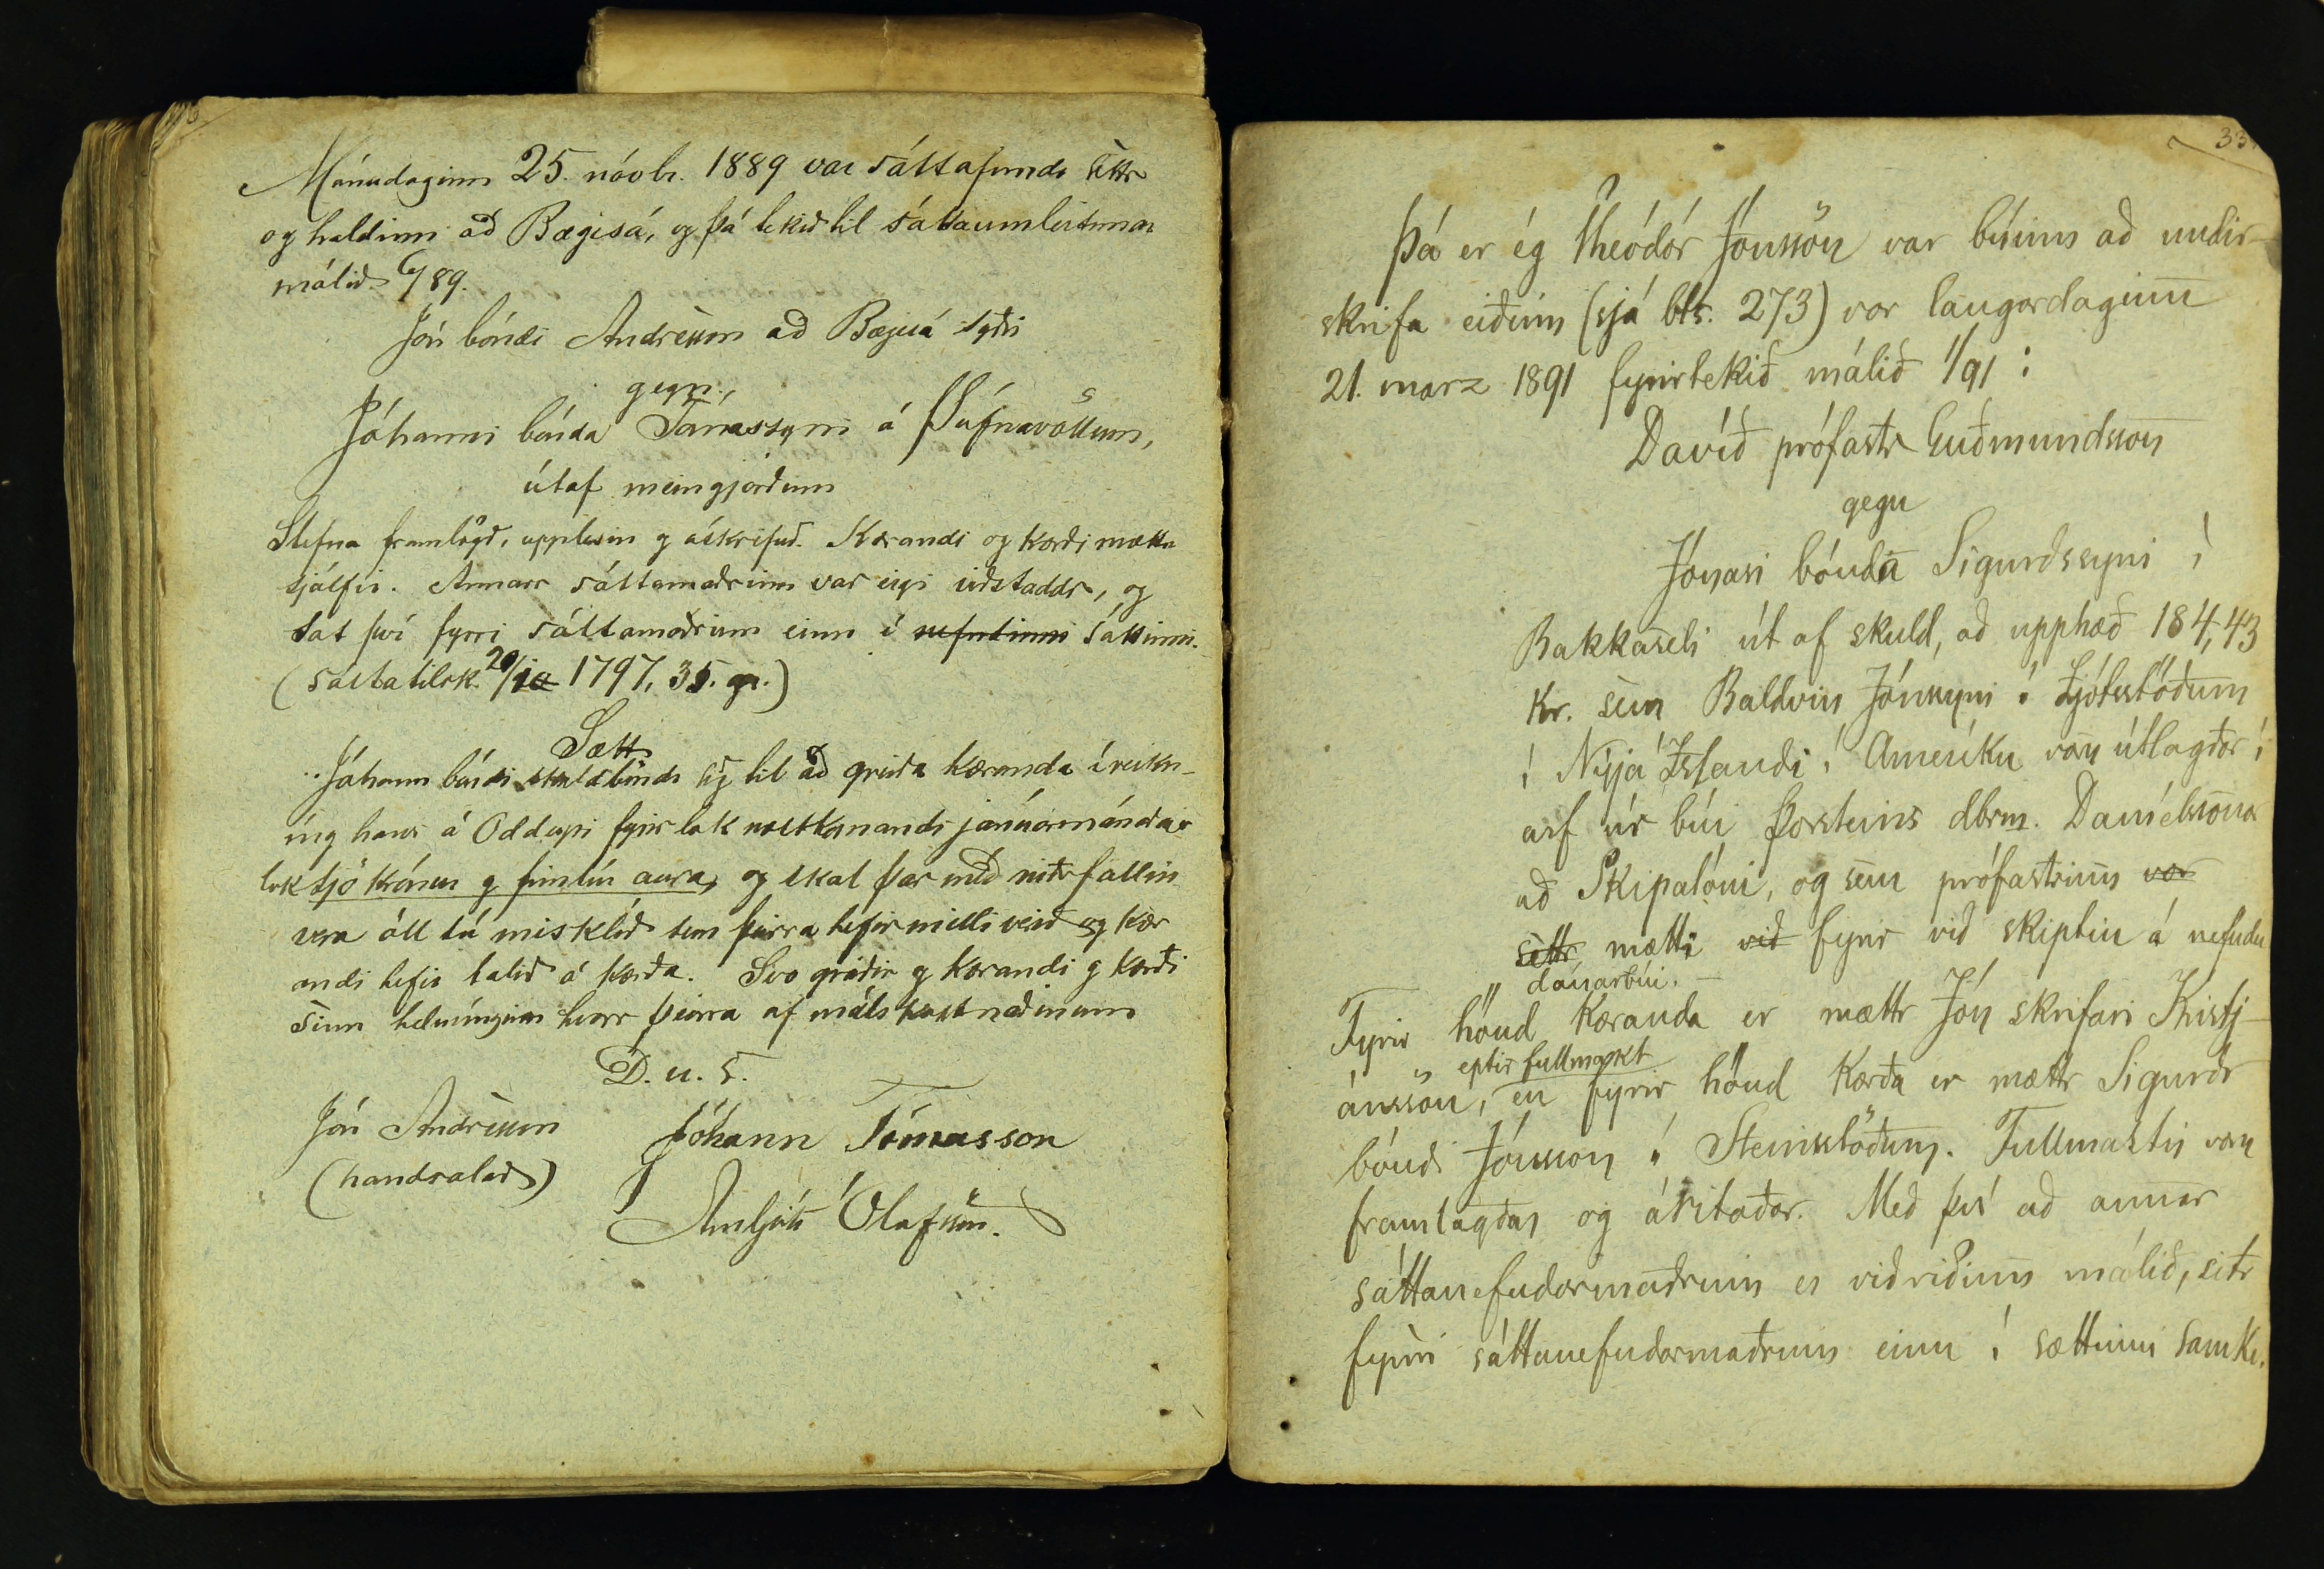 Mánudaginn 25. nóvbr. 1889 var sáttafundr settr
og haldinn að Bægisá, og þá tekið til sáttaumleitunar
málið 6/89.
Jón bóndi Andrèsson að Bægisá syðri
gegn
Jóhanni bónda Tómassyni á Þúfnavöllum,
útaf meingjörðum
Stefna framlögð, upplesin g áskrifuð. Kærandi og kærði mættu
sjálfir. Annarr sáttamaðrinn var eigi viðstaddr, og
sat því fyrri sáttamaðrinn einn í nefndinni sáttinni.
(sáttatilsk. 20/10 1797, 35. gr.)
Sætt
Jóhann bóndi skuldbindr sig til að greiða kæranda í reikn-
íng hans á Oddeyri fyrir lok næstkomandi janúarmánaðar
lok sjö krónur g fimtíu aura, og skal þar með niðrfallin
vera öll sú misklíð sem þeirra hefir milli verið og kær
andi hefir talið á kærða. Svo greiðir g kærandi g kærði
sinn helmínginn hvorr þeirra af málskostnaðinum
D. u. s.
Jón Andrèsson Jóhann Tómasson
(handsalað)
Arnljótr Ólafsson.
33
Þá er ég Theódór Jónsson var búinn að undir-
skrifa eiðinn (sjá bls. 273) var laugardaginn
21. marz 1891 fyrirtekið málið 1/91:
Davíð prófastr Guðmundsson
gegn
Jónasi bónda Sigurðssyni í
Bakkaseli út af skuld, að upphæð 184,43
kr. sem Baldvin Jónssyni á Ljótsstöðum
í Nýja Íslandi í Ameríku voru útlagðar í
arf úr búi Þorsteins dbrm. Daníelssonar
að Skipalóni, og sem prófastrinn var
settr mætti við fyrir við skiptin á nefndu
dánarbúi.
Fyrir hönd kæranda er mættr Jón skrifari Kristj-
eptir fullmakt
ánsson, en fyrir hönd kærða er mættr Sigurðr
bóndi Jónsson á Steinsstöðum. Fullmaktir voru
framlagðar og áritaðar. Með því að annar
sáttanefndarmaðrinn er viðriðinn málið, sitr
fyrri sáttanefndarmaðrinn einn í sættinni samkv.